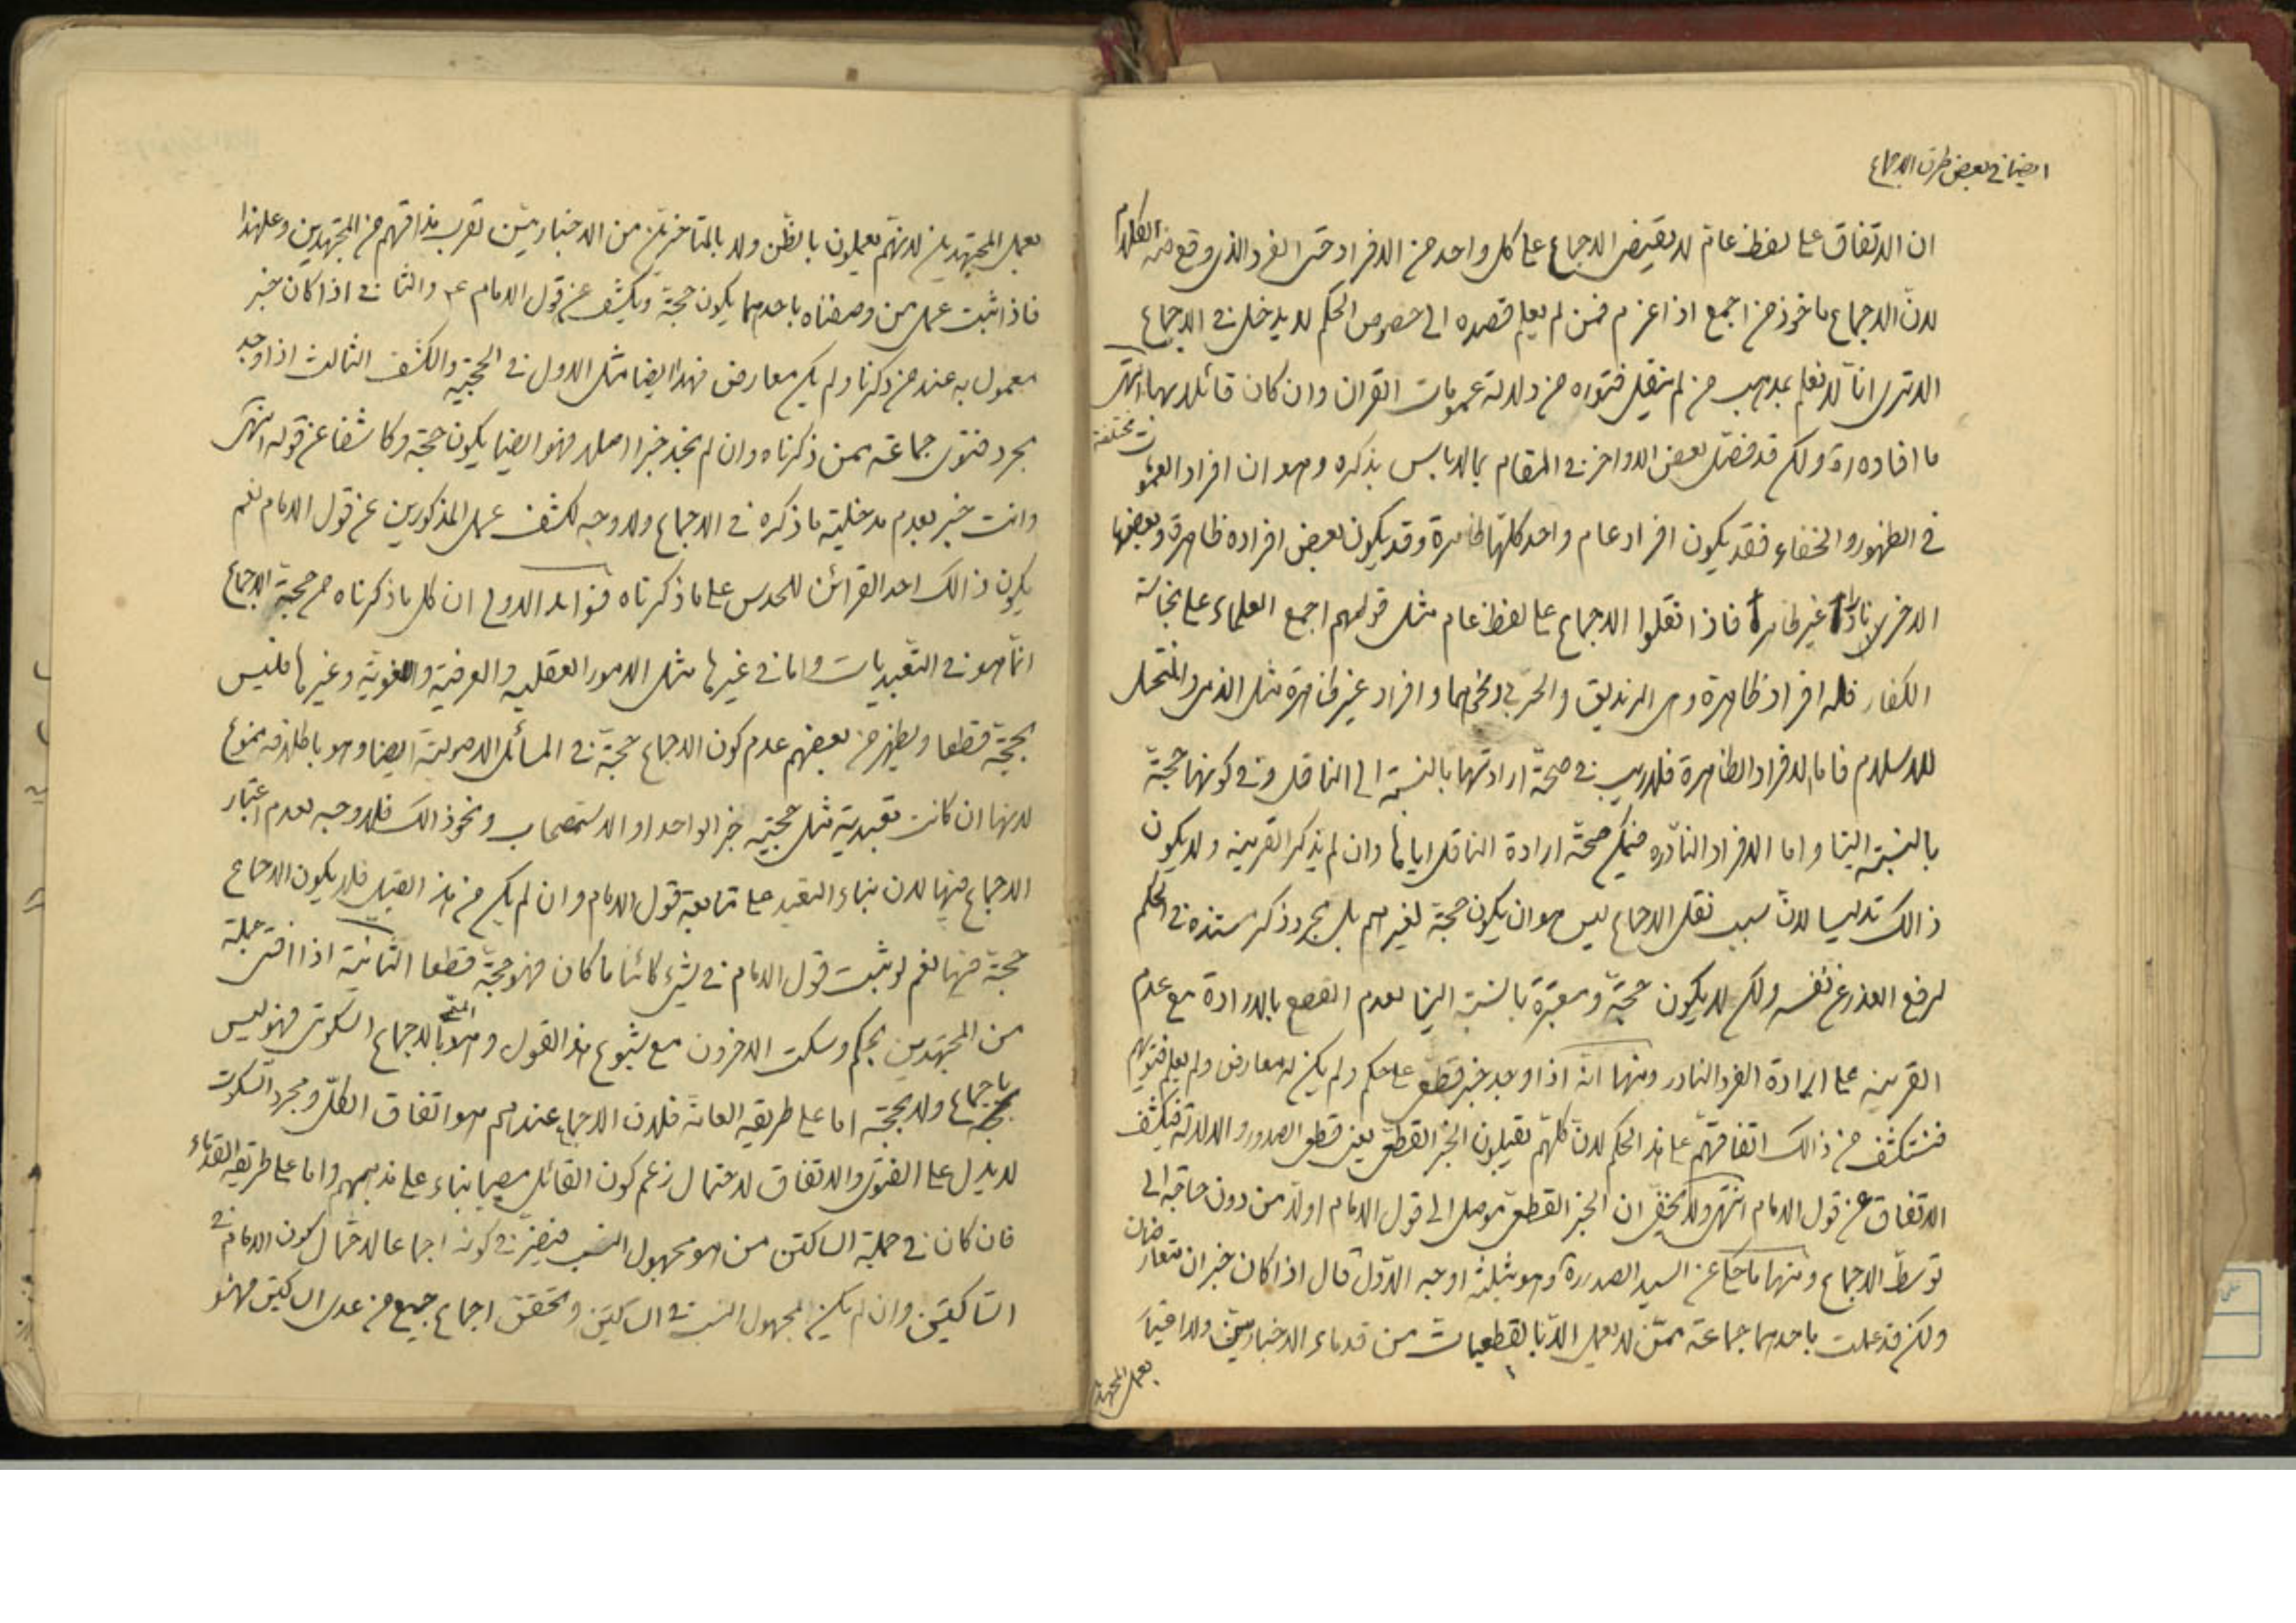 ايضا في بعض طرق الاجماع
ان الاتفاق على لفظ عام لا يقتضى الاجماع على كل واحد من الافراد حتى الفرد الذى وقع فيه الكلام
لان الاجماع ماخوذ من اجمع اذا عزم فمن لم يعلم قصده الى خصوص الحكم لا يدخل في الاجماع
الا ترى انا لا نعلم بمذهب من لم ينقل فتواه من دلالة عمومات القران وان كان قائلا بها انتهى
ما افاده ره ولكن قد فصّل بعض الاواخر في المقام بما لا باس بذكره وهو ان افراد العمومات مختلفة
في الظهور والخفاء فقد يكون افراد عام واحد كلها ظاهرة وقد يكون بعض افراده ظاهرة وبعضها
الاخر نادرا غير ظاهرة فاذا نقلوا الاجماع على لفظ عام مثل قولهم اجمع العلماء على نجاسة
الكفار فله افراد ظاهرة وهى الزنديق والحربى ونحوهما وافراد غير ظاهرة مثل الذمى والمنتحل
للاسلام فاما الافراد الظاهرة فلا ريب في صحة ارادتها بالنسبة الى الناقل وفي كونها حجة
بالنسبة الينا واما الافراد النادره فيمكن صحة ارادة الناقل اياها وان لم يذكر القرينة ولا يكون
ذالك تدليسا لان سبب نقل الاجماع ليس هو ان يكون حجة لغيرهم بل مجرد ذكر مستنده في الحكم
لرفع العذر عن نفسه ولكن لا يكون حجة ومعتبرة بالنسبة الينا لعدم القطع بالارادة مع عدم
القرينة على ارادة الفرد النادر ومنها انه اذا وجد خبر قطعى على حكم ولم يكن له معارض ولم يعلم فتويهم
فنستكشف من ذالك اتفاقهم على هذا الحكم لان كلهم يقبلون الخبر القطعى يعنى قطعى الصدور والدلالة فيكشف
الاتفاق عن قول الامام انتهى ولا يخفى ان الخبر القطعى موصل الى قول الامام اولا من دون حاجة الى
توسط الاجماع ومنها ما حكى عن السيد الصدر ره وهو بثلثة اوجه الاول قال اذا كان خبران متعارضان
ولكن قد عملت باحدهما جماعة ممن لا يعمل الا بالقطعيات من قدماء الاخباريين ولا اعتبار
بعمل المجتهدين
بعمل المجتهدين لانهم يعملون بالظن ولا بالمتاخرين من الاخباريين لقرب مذاقهم من المجتهدين وعلى هذا
فاذا ثبت عمل من وصفناه باحدهما يكون حجة ويكشف عن قول الامام ع والثانى اذا كان خبر
معمول به عند من ذكرنا ولم يكن معارض فهذا ايضا مثل الاول في الحجية والكشف الثالث اذا وجد
مجرد فتوى جماعة ممن ذكرناه وان لم نجد خبرا اصلا فهو ايضا يكون حجة وكاشفا عن قوله انتهى
وانت خبير بعدم مدخلية ما ذكره في الاجماع ولا وجه لكشف عمل المذكورين عن قول الامام نعم
يكون ذالك احد القرائن للحدس على ما ذكرناه فوائد الاولى ان كل ما ذكرناه من حجية الاجماع
انما هو في التعبديات واما في غيرها مثل الامور العقليه والعرفية واللغوية وغيرها فليس
بحجية قطعا ويظهر من بعضهم عدم كون الاجماع حجة في المسائل الاصولية ايضا وهو باطلاقه ممنوع
لانها ان كانت تعبدية مثل حجية خبر الواحد او الاستصحاب ونحو ذالك فلا وجه لعدم اعتبار
الاجماع فيها لان بناء التعبد على متابعة قول الامام وان لم يكن من هذا القبيل فلا يكون الاجماع
حجة فيها نعم لو ثبت قول الامام في شىء كائنا ما كان فهو حجة قطعا الثانية اذا افتى جملة
من المجتهدين بحكم وسكت الاخرون مع شيوع هذا القول وهو المسمى بالاجماع السكوتى فهو ليس
باجماع ولا بحجة اما على طريقه العامة فلان الاجماع عندهم هو اتفاق الكل ومجرد السكوت
لا يدل على الفتوى والاتفاق لاحتمال زعم كون القائل مصيبا بناء على مذهبهم واما على طريقه القدماء
فان كان في جملة الساكتين من هو مجهول النسب فيضر في كونه اجماعا لاحتمال كون الامام في
الساكتين وان لم يكن المجهول النسب في الساكتين وتحقق اجماع جميع من عدى الساكتين فهو